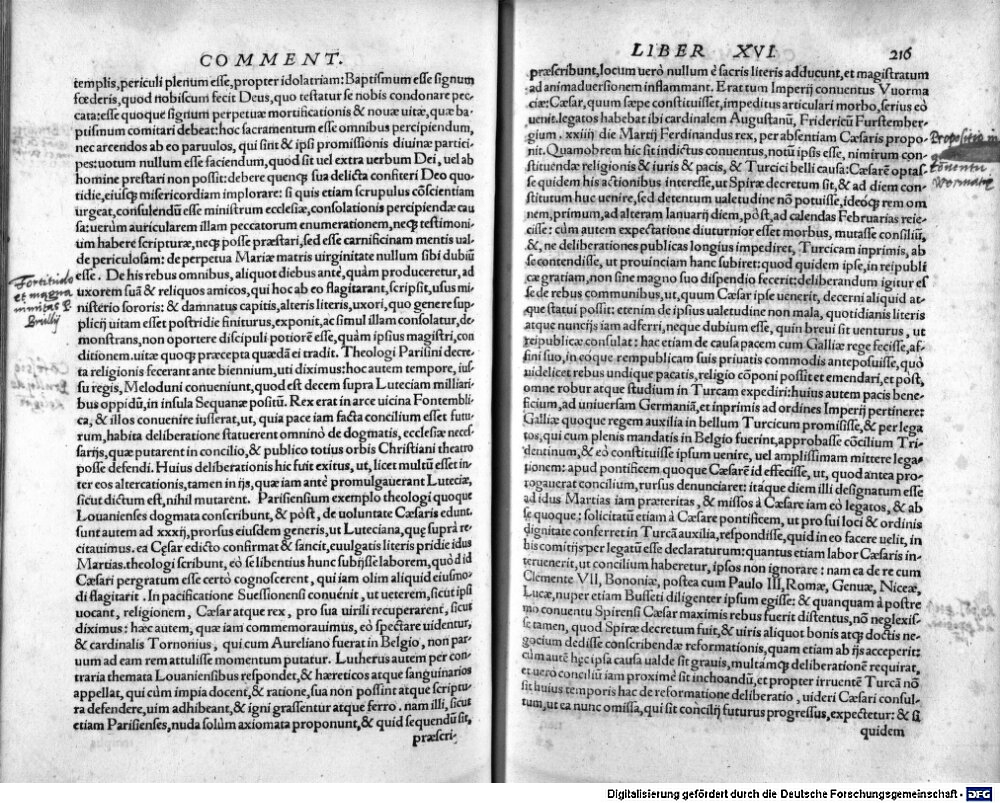 COMMENT.
templis, periculi plenum esse, propter idolatriam: Baptismum esse signum
fœderis, quod nobiscum fecit Deus, quo testatur se nobis condonare pec-
cata: esse quoque signum perpetuæ mortificationis & nouæ uitæ, quæ ba-
ptismum comitari debeat: hoc sacramentum esse omnibus percipiendum,
nec arcendos ab eo paruulos, qui sint & ipsi promissionis diuinæ partici-
pes: uotum nullum esse faciendum, quod sit uel extra uerbum Dei, uel ab
homine prestari non possit: debere quenque sua delicta confiteri Deo quo-
tidie, eiusq; misericordiam implorare: si quis etiam scrupulus cõscientiam
urgeat, consulendũ esse ministrum ecclesiæ, consolationis percipiendæ cau
sa: uerùm auricularem illam peccatorum enumerationem, neq; testimoni-
um habere scripturæ, neq; posse præstari, sed esse carnificinam mentis ual-
de periculosam: de perpetua Mariæ matris uirginitate nullum sibi dubiũ
esse. De his rebus omnibus, aliquot diebus antè, quàm produceretur, ad
uxorem suã & reliquos amicos, qui hoc ab eo flagitarant, scripsit, usus mi
nisterio sororis: & damnatus capitis, alteris literis, uxori, quo genere sup
plicij uitam esset postridie finiturus, exponit, ac simul illam consolatur, de-
monstrans, non oportere discipuli potiorẽ esse, quàm ipsius magistri, con
ditionem. uitæ quoq; præcepta quædã ei tradit. Theologi Parisini decre
ta religionis fecerant ante biennium, uti diximus: hoc autem tempore, ius-
su regis, Meloduni conueniunt, quod est decem supra Luteciam milliari-
bus oppidũ, in insula Sequanæ positũ. Rex erat in arce uicina Fontembli-
ca, & illos conuenire iusserat, ut, quia pace iam facta concilium esset futu-
rum, habita deliberatione statuerent omninò de dogmatis, ecclesiæ neces-
sarijs, quæ putarent in concilio, & publico totius orbis Christiani theatro
posse defendi. Huius deliberationis hic fuit exitus, ut, licet multũ esset in-
ter eos altercationis, tamen in ijs, quæ iam antè promulgauerant Luteciæ,
sicut dictum est, nihil mutarent. Parisiensium exemplo theologi quoque
Louanienses dogmata conscribunt, & pòst, de uoluntate Cæsaris edunt.
sunt autem ad xxxij, prorsus eiusdem generis, ut Luteciana, quę suprà re-
citauimus. ea Cęsar edicto confirmat & sancit, euulgatis literis pridie idus
Martias. theologi scribunt, eò se libentius hunc subijsse laborem, quòd id
Cæsari pergratum esse certò cognoscerent, qui iam olim aliquid eiusmo-
di flagitarit. In pacificatione Suessionensi conuénit, ut ueterem, sicut ipsi
uocant, religionem, Cæsar atque rex, pro sua uirili recuperarent, sicut
diximus: hæc autem, quæ iam commemorauimus, eò spectare uidentur,
& cardinalis Tornonius, qui cum Aureliano fuerat in Belgio, non par-
uum ad eam rem attulisse momentum putatur. Lutherus autem per con-
traria themata Louaniensibus respondet, & hæreticos atque sanguinarios
appellat, qui cùm impia docent, & ratione, sua non possint atque scriptu-
ra defendere, uim adhibeant, & igni grassentur atque ferro. nam illi, sicut
etiam Parisienses, nuda solùm axiomata proponunt, & quid sequendũ sit,
præscri-
Fortitudo
et magna
LIBER XVI. 216
præscribunt, locum uerò nullum è sacris literis adducunt, et magistratum
ad animaduersionem inflammant. Erat tum Imperij conuentus Vuorma
ciæ: Cæsar, quum sæpe constituisset, impeditus articulari morbo, serius eò
uenit. legatos habebat ibi cardinalem Augustanũ, Fridericũ Furstember-
gium. xxiiij die Martij Ferdinandus rex, per absentiam Cæsaris propo-
nit. Quamobrem hic sit indictus conuentus, notũ ipsis esse, nimirum con-
stituendæ religionis & iuris & pacis, & Turcici belli causa: Cæsarẽ optas-
se quidem his actionibus interesse, ut Spiræ decretum sit, & ad diem con-
stitutum huc uenire, sed detentum ualetudine nõ potuisse, ideoq; rem om
nem, primum, ad alteram Ianuarij diem, pòst, ad calendas Februarias reie-
cisse: cùm autem expectatione diuturnior esset morbus, mutasse consiliũ,
&, ne deliberationes publicas longius impediret, Turcicam inprimis, ab
se contendisse, ut prouinciam hanc subiret: quod quidem ipse, in reipubli
cæ gratiam, non sine magno suo dispendio fecerit: deliberandum igitur es
se de rebus communibus, ut, quum Cæsar ipse uenerit, decerni aliquid at-
que statui possit: etenim de ipsius ualetudine non mala, quotidianis literis
atque nuncijs iam adferri, neque dubium esse, quin breui sit uenturus, ut
reipublicæ consulat: hac etiam de causa pacem cum Galliæ rege fecisse, af-
fini suo, in eóque rempublicam suis priuatis commodis anteposuisse, quò
uidelicet rebus undique pacatis, religio cõponi possit et emendari, et pòst,
omne robur atque studium in Turcam expediri: huius autem pacis bene-
ficium, ad uniuersam Germaniã, et inprimis ad ordines Imperij pertinere:
Galliæ quoque regem auxilia in bellum Turcicum promisisse, & per lega
tos, qui cum plenis mandatis in Belgio fuerint, approbasse cõcilium Tri-
dentinum, & eò constituisse ipsum uenire, uel amplissimam mittere lega-
tionem: apud pontificem quoque Cæsarẽ id effecisse, ut, quod antea pro-
rogauerat concilium, rursus denunciaret: itáque diem illi designatum esse
ad idus Martias iam præteritas, & missos à Cæsare iam eò legatos, & ab
se quoque: solicitatũ etiam à Cæsare pontificem, ut pro sui loci & ordinis
dignitate conferret in Turcã auxilia, respondisse, quid in eo facere uelit, in
his comitijs per legatũ esse declaraturum: quantus etiam labor Cæsaris in-
teruenerit, ut concilium haberetur, ipsos non ignorare: nam ea de re cum
Clemente VII, Bononiæ, postea cum Paulo III, Romæ, Genuæ, Niceæ,
Lucæ, nuper etiam Busseti diligenter ipsum egisse: & quanquam à postre
mo conuentu Spirensi Cæsar maximis rebus fuerit distentus, nõ neglexis-
se tamen, quod Spiræ decretum fuit, & uiris aliquot bonis atq; doctis ne-
gocium dedisse conscribendæ reformationis, quam etiam ab ijs acceperit:
cùm autẽ hęc ipsa causa ualde sit grauis, multamq; deliberationẽ requirat,
et uero conciliũ iam proximè sit inchoandũ, et propter irruentẽ Turcã nõ
sit huius temporis hac de reformatione deliberatio, uideri Cæsari consul-
tum, ut ea nunc omissa, qui sit concilij futurus progressus, expectetur: & si
quidem
Propositio in
conuentu
Wormatiæ
Digitalisierung gefördert durch die Deutsche Forschungsgemeinschaft - DFG